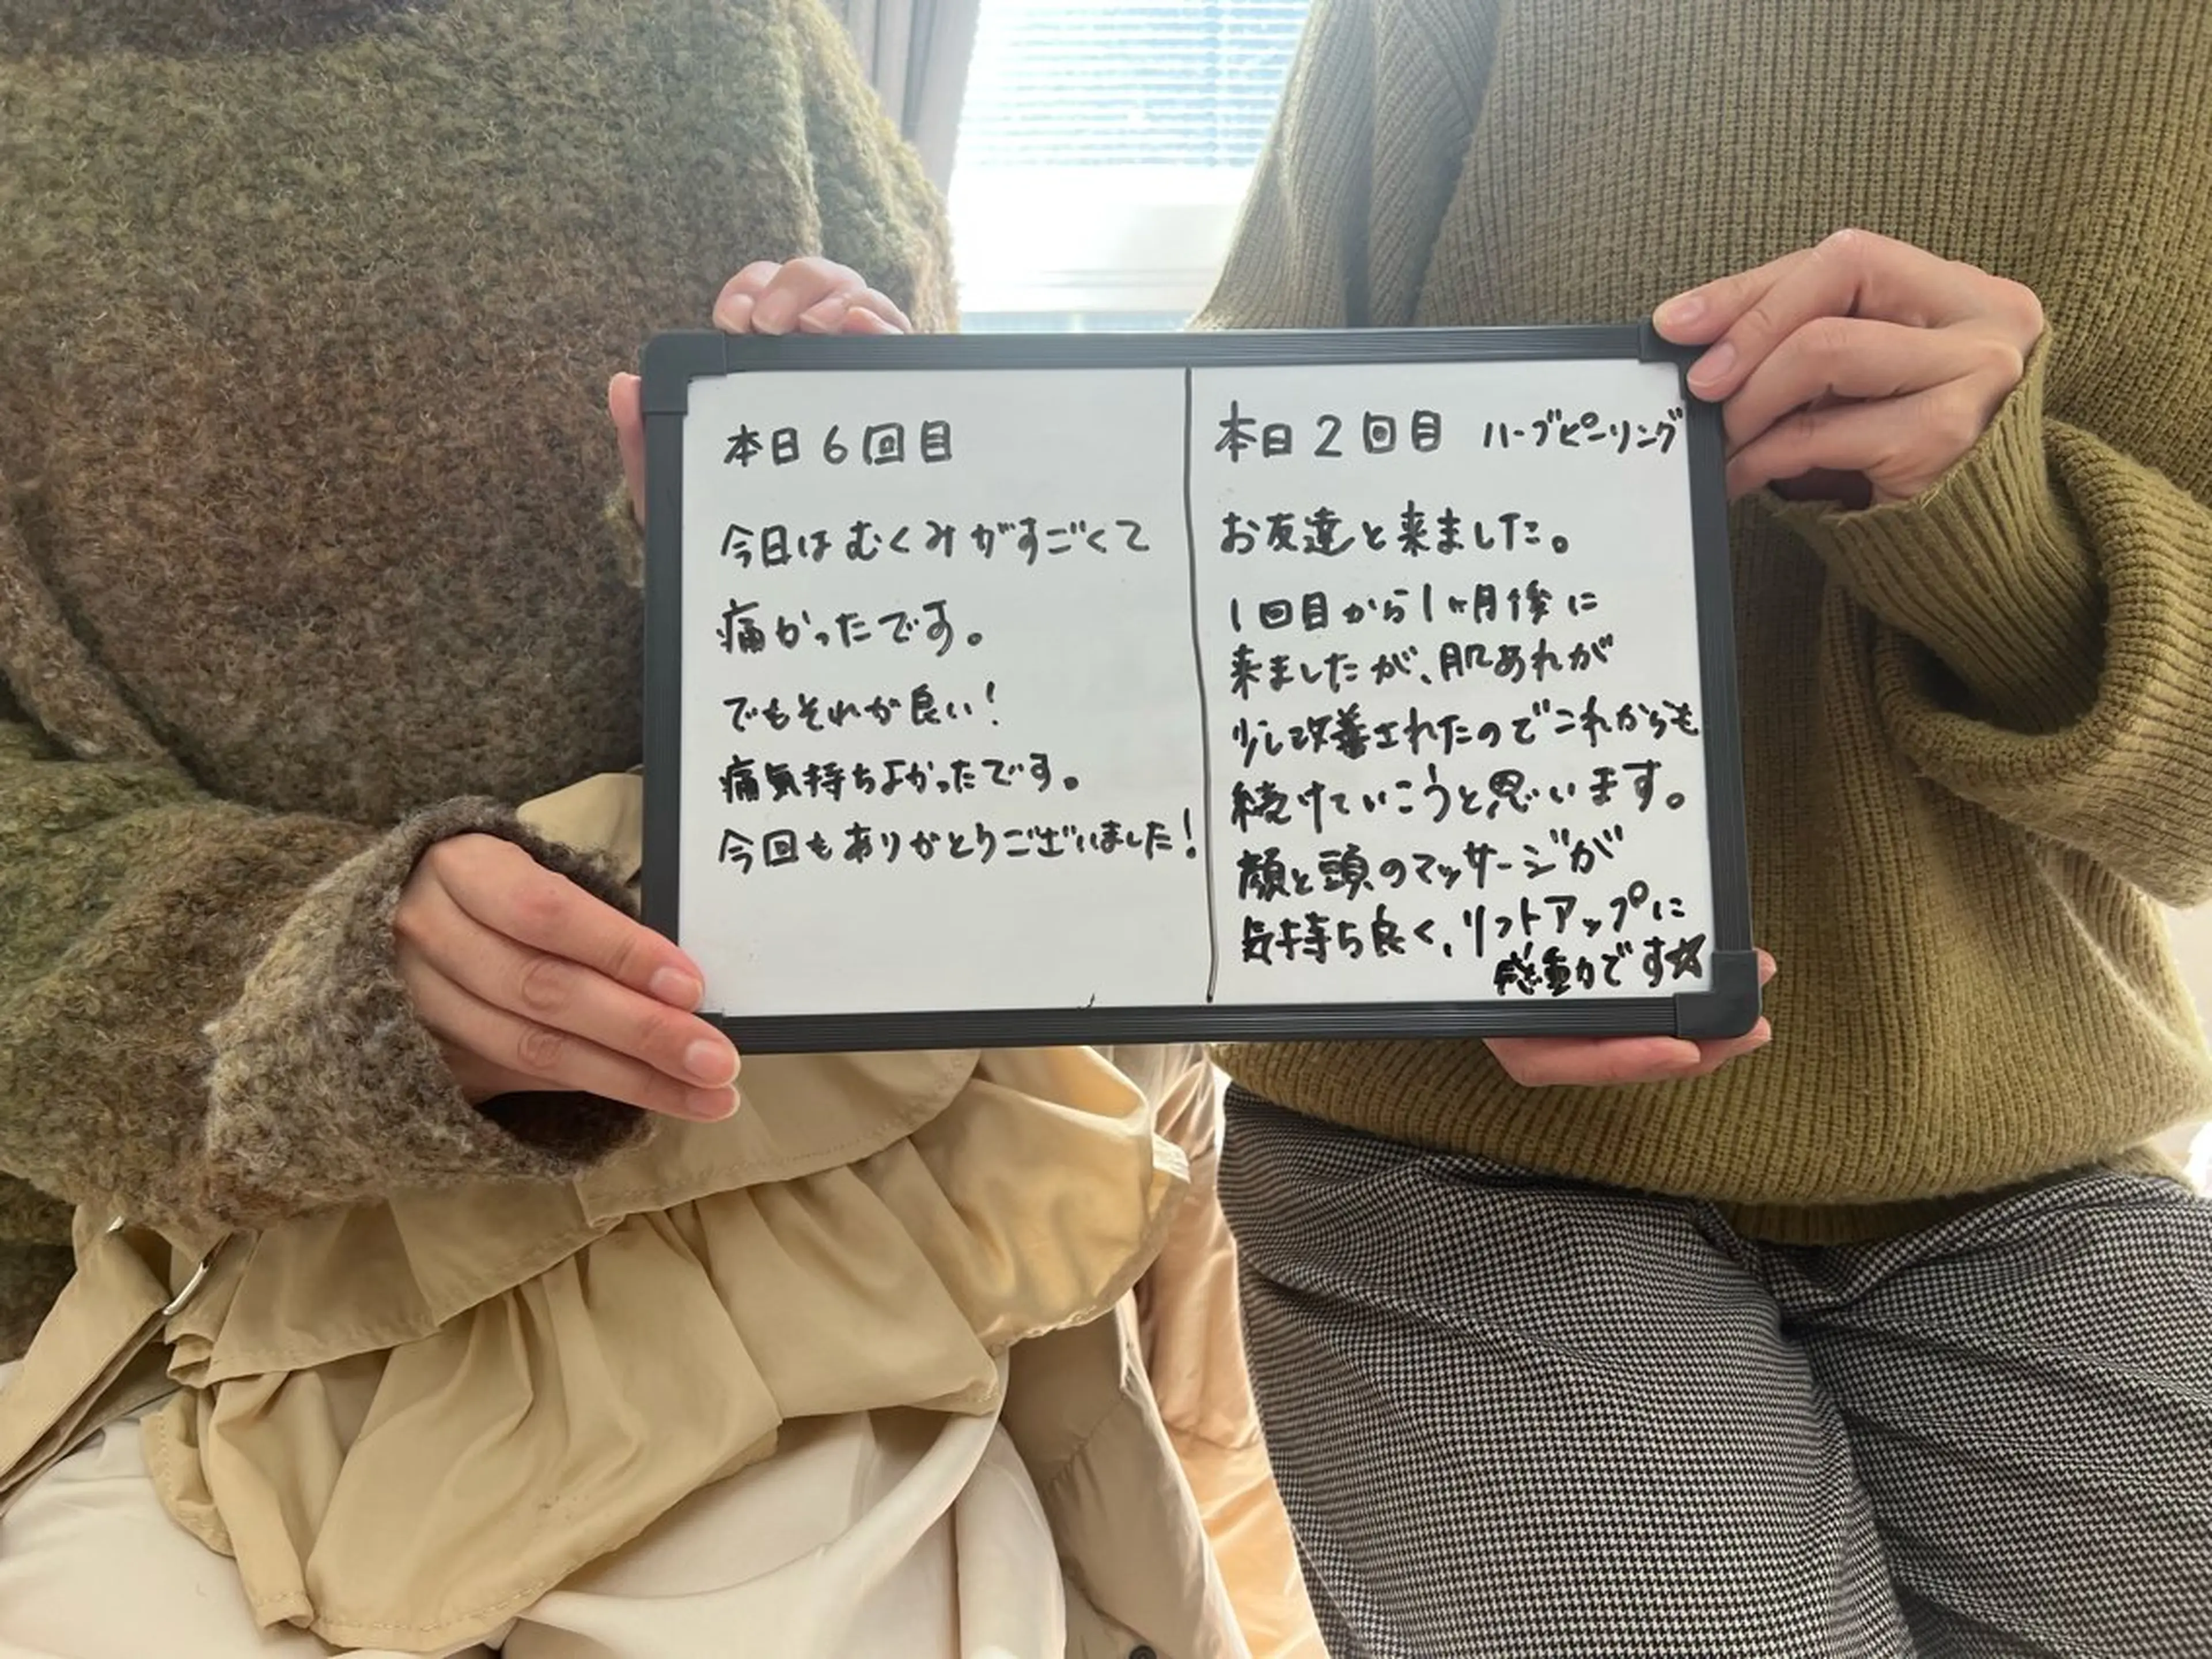 本日6回目
今日はむくみがすごくて
痛かったです。
でもそれが良い!
痛気持ちよかったです。
今回もありがとうございました!
本日2回目 ハーブピーリング
お友達と来ました。
1回目から1ヶ月後に
来ましたが、肌あれが
少し改善されたのでこれからも
続けていこうと思います。
顔と頭のマッサージが
気持ち良く、リフトアップに
感動です☆